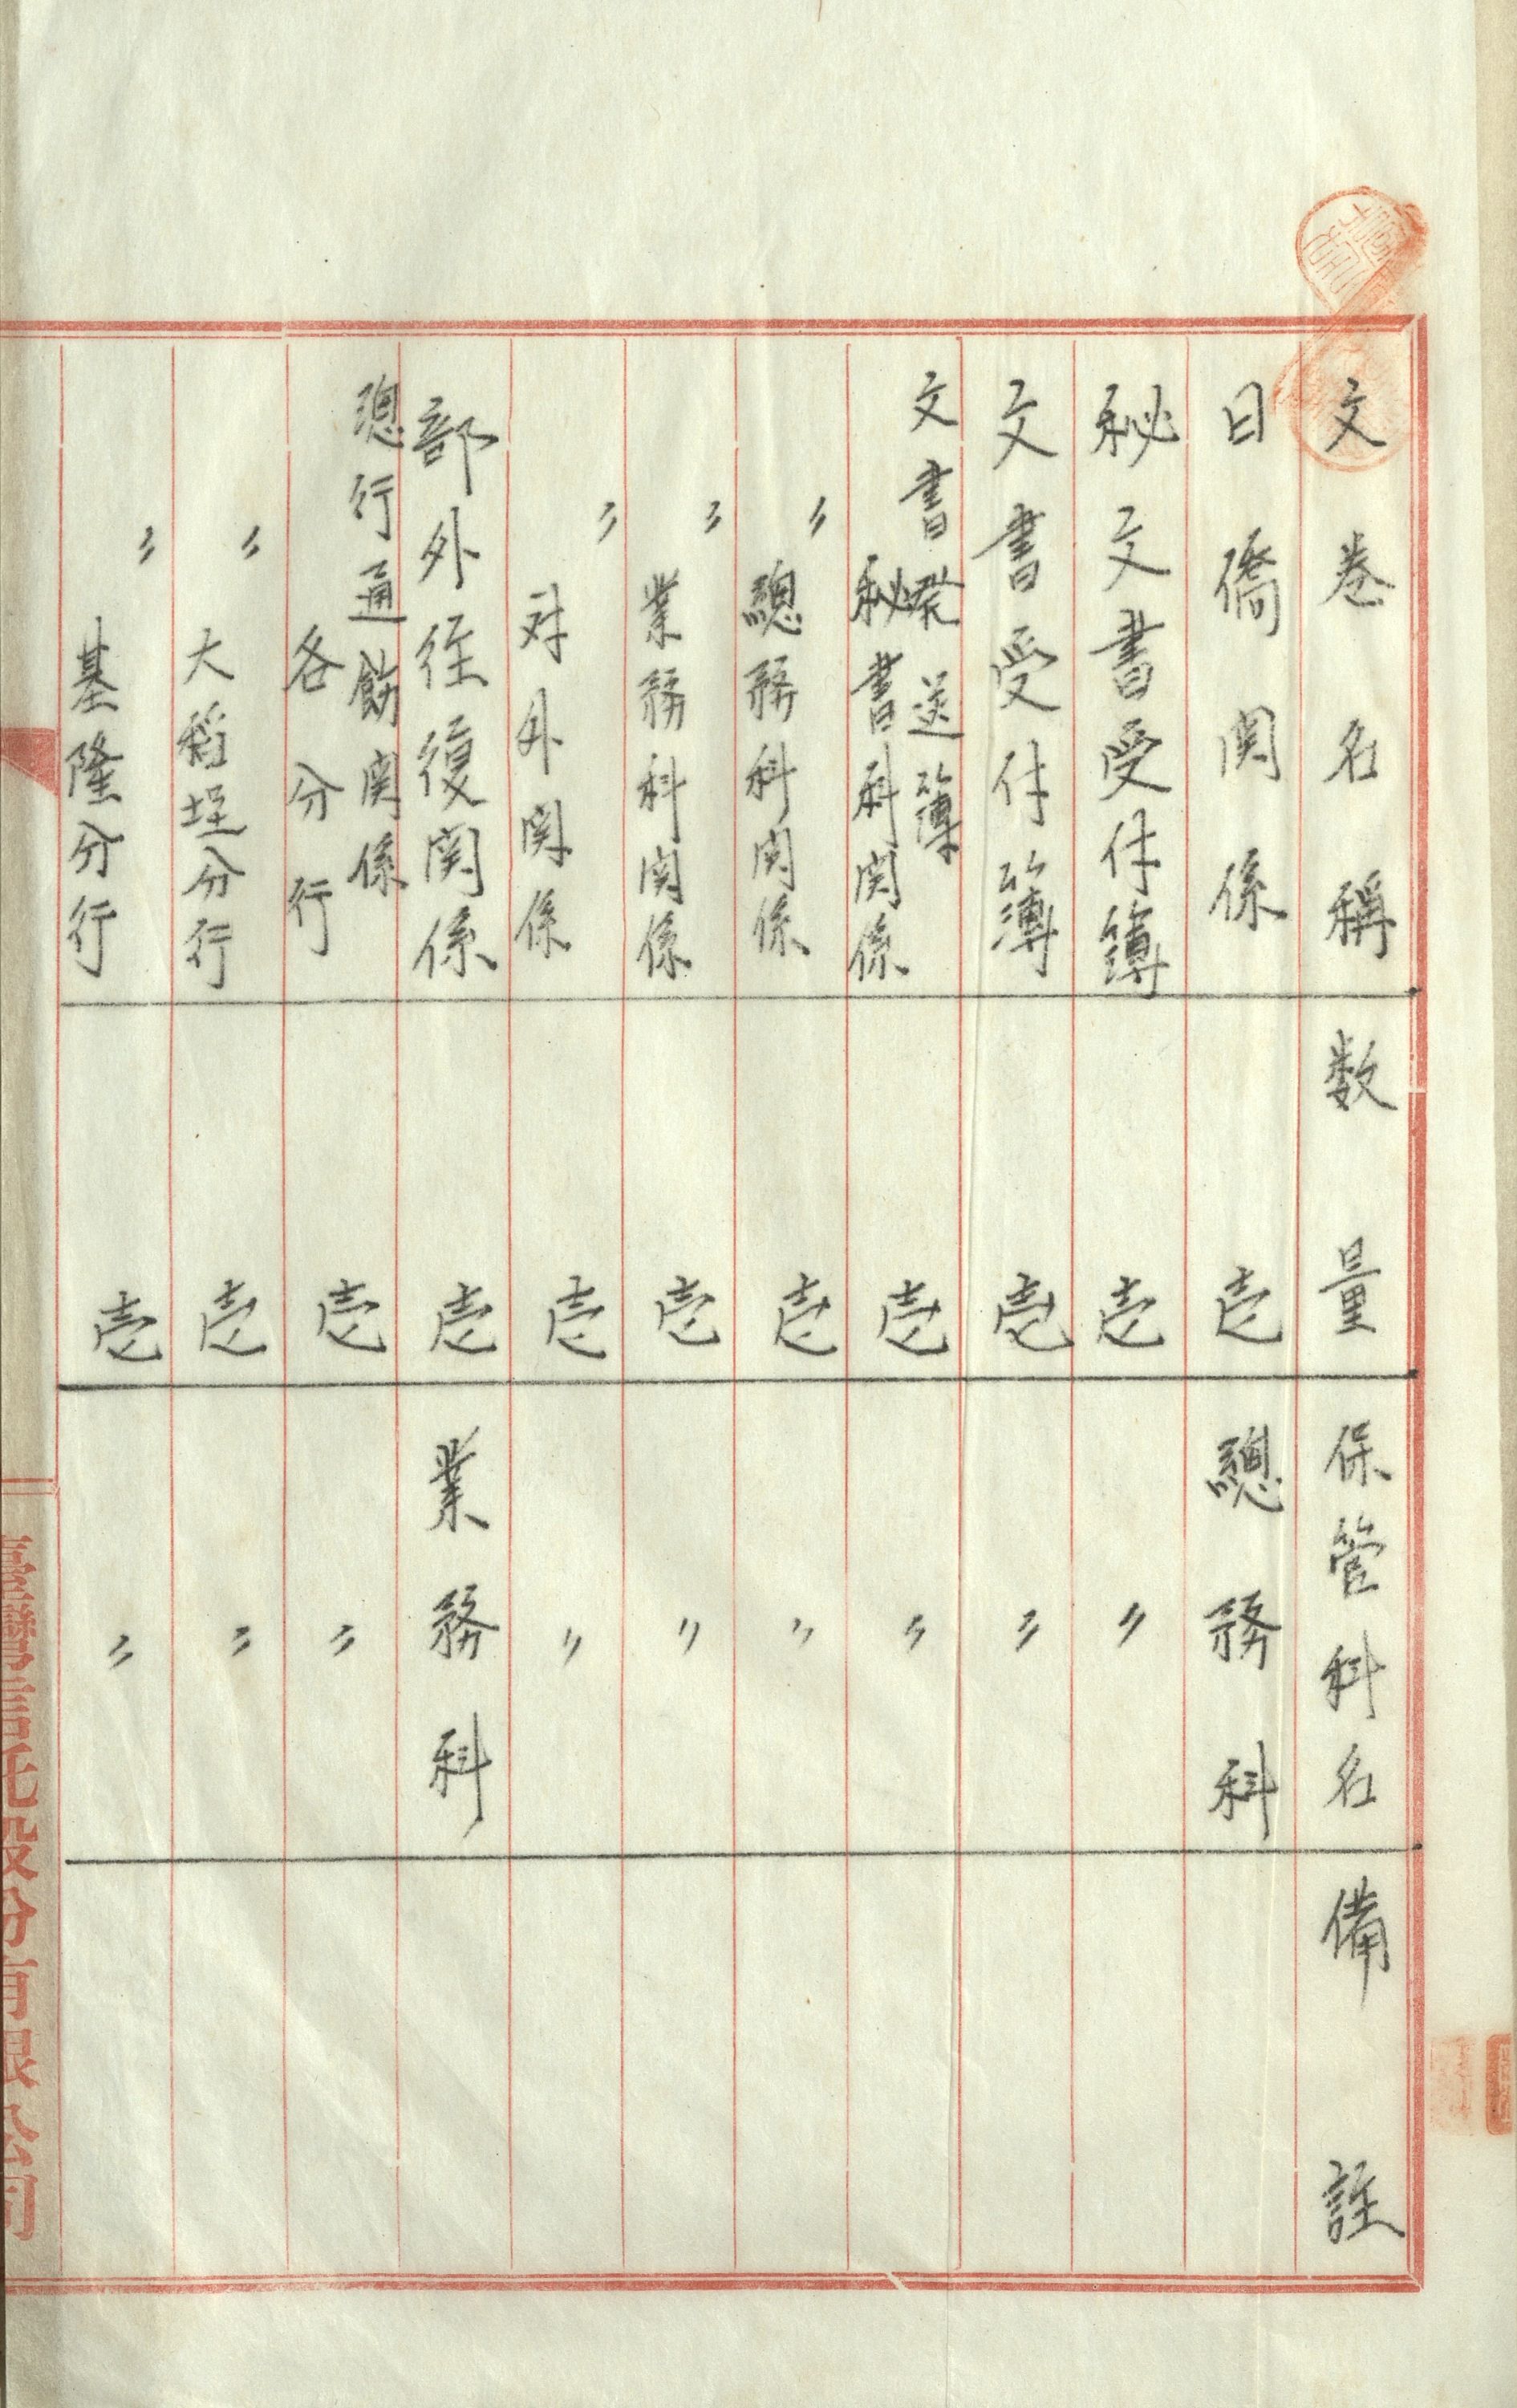 文卷名稱 数量 保管科名 備註
日僑関係 壱 總務科
秘文書受付簿 壱 〃
文書受付簿 壱 〃
文書発送簿
秘書科関係 壱 〃
〃 總務科関係 壱 〃
〃 業務科関係 壱 〃
〃 対外関係 壱 〃
部外往復関係 壱 業務科
總行通飭関係
各分行 壱 〃
〃 大稻埕分行 壱 〃
〃 基隆分行 壱 〃
臺灣信託股份有限公司